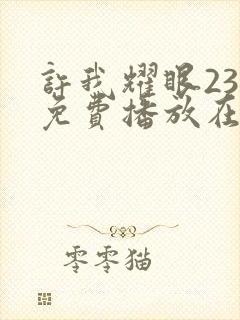 許我耀眼23
免費播放在
零零猫